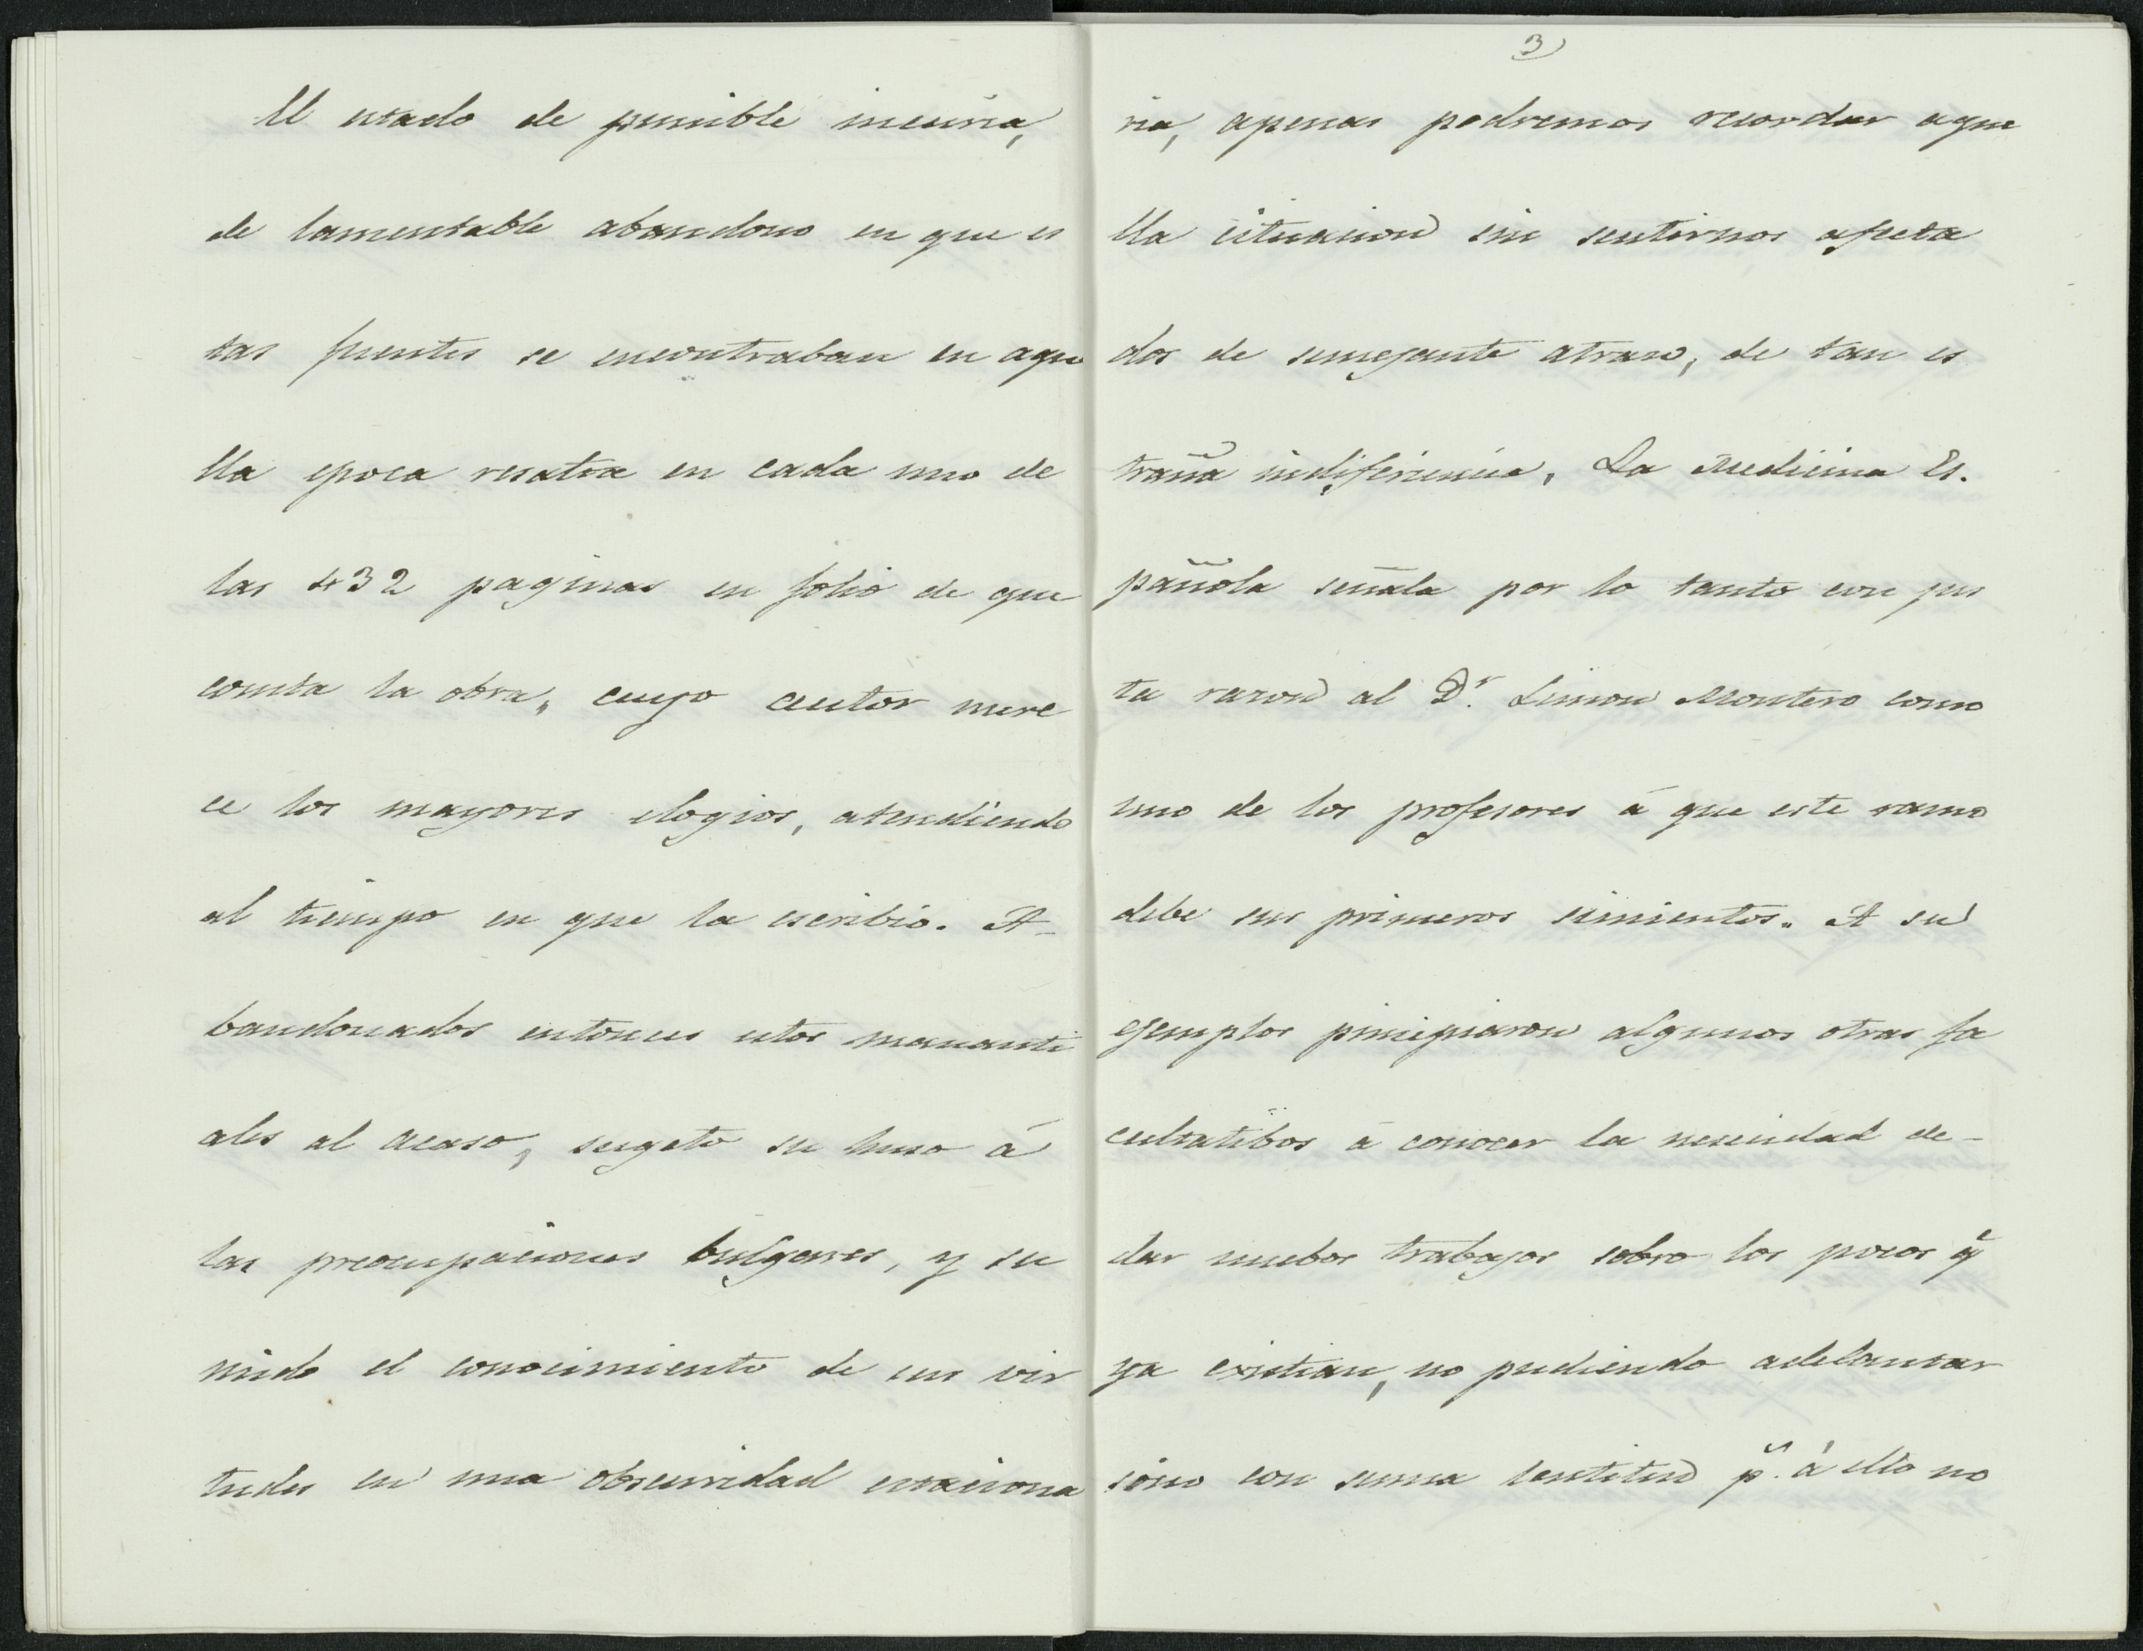 El estado de punible incuria,
de lamentable abandono en que es
tas fuentes se encontraban en aque
lla epoca resatra en cada uno de
las 432 paginas en folio de que
consta la obra, cuyo autor mere
ce los mayores elogios, atendiendo
al tiempo en que la escribio. A-
bandonados entonces estos mananti
ales al acaso, sugeto su huso á
las preocupaciones bulgares, y su
mido el conocimiento de sus vir
tudes en una obscuridad estaciona
3
ria, apenas podremos recordar aque
lla cituacion sin sentirnos afecta
dos de semejante atraso, de tan es
traña indiferiencia. La Medicina Es.
pañola señala por lo tanto con jus
ta razon al Dr. Limon Montero como
uno de los profesores á que este ramo
debe sus primeros cimientos. A su
ejemplos principiaron algunos otras fa
cultatibos á conocer la necesidad de-
dar nuebos trabajos sobre los pocos q̃
ya existian, no pudiendo adelantar
sino con suma lentitud p.ˢ á ello no